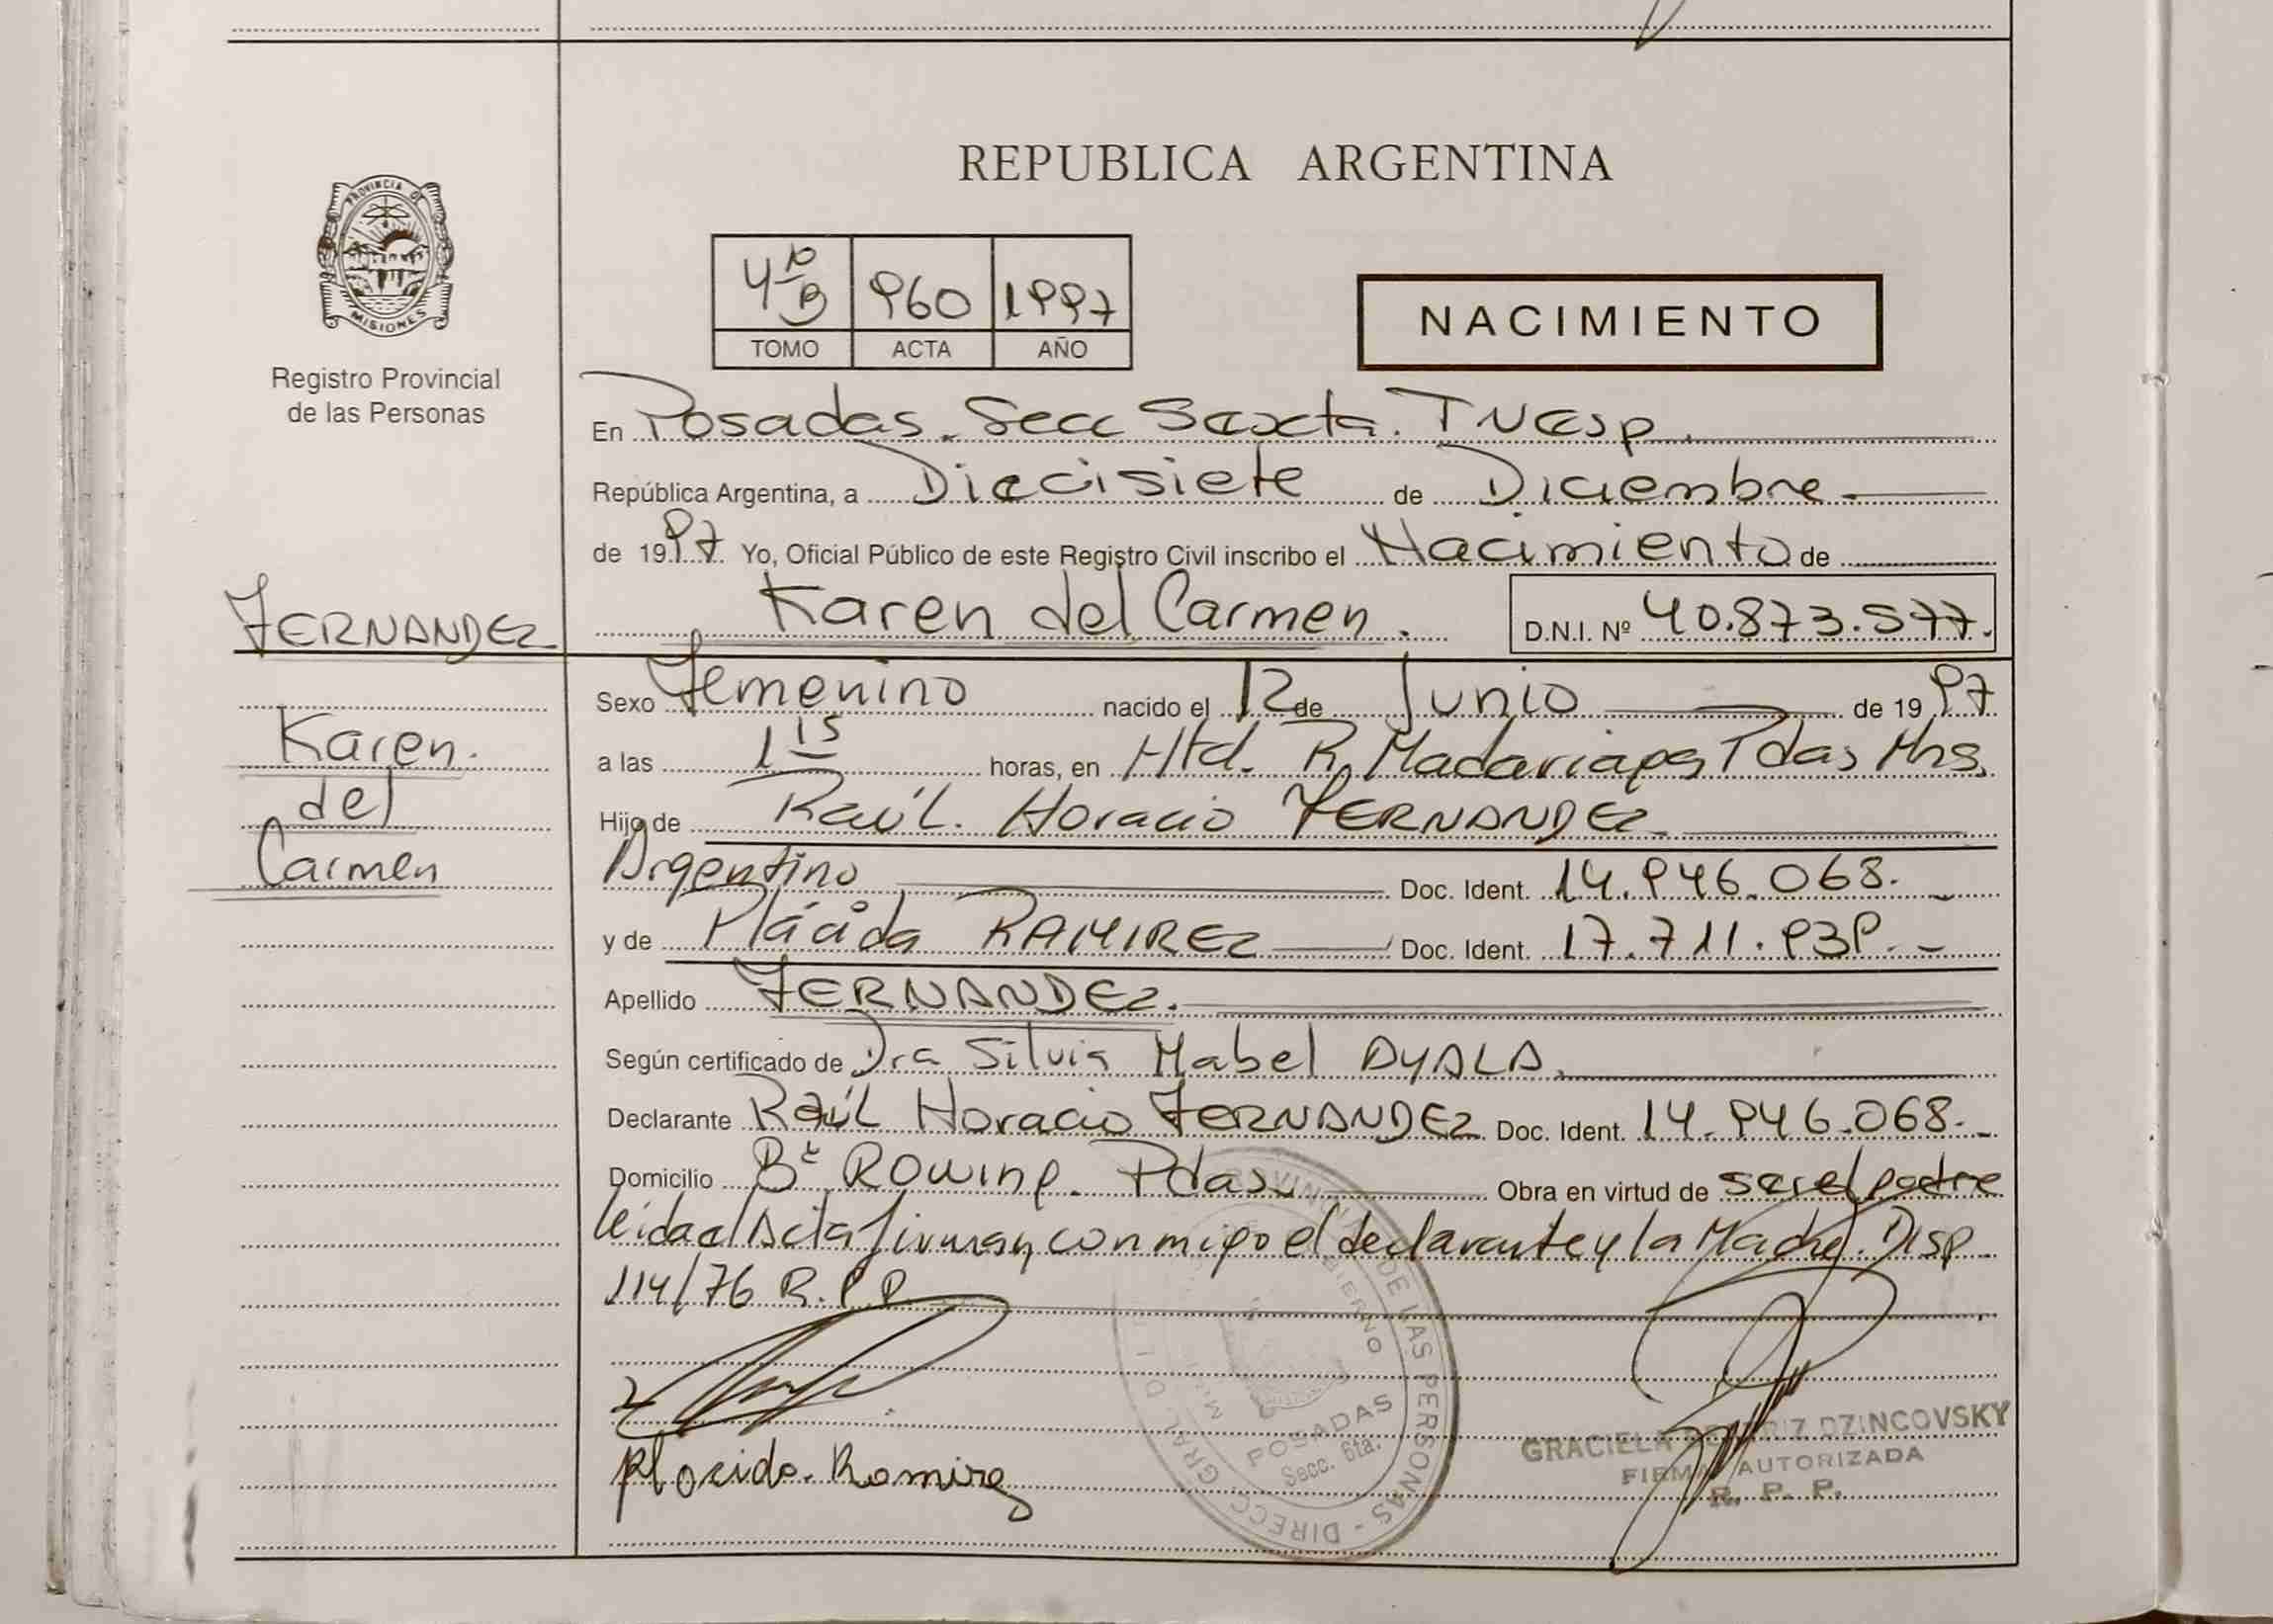 REPUBLICA ARGENTINA
PROVINCIA DE
MISIONES
Registro Provincial
de las Personas
960 1997
TOMO ACTA AÑO
NACIMIENTO
En Posadas. Secc Sexta.
República Argentina, a Diecisiete de Diciembre
de 1997 Yo, Oficial Público de este Registro Civil inscribo el Nacimiento de
Karen del Carmen. D.N.I. Nº 40.873.577.
FERNANDEZ
Karen.
del
Carmen
Sexo Femenino nacido el 12 de Junio de 1997
a las 1 15 horas, en Htal. R. Madariaga Pdas Mns.
Hijo de Raúl. Horacio FERNANDEZ
Argentino Doc. Ident. 14.946.068.
y de Plácida RAMIREZ Doc. Ident. 17.711.939.
Apellido FERNANDEZ.
Según certificado de Dra Silvia Mabel AYALA.
Declarante Raúl Horacio FERNANDEZ Doc. Ident. 14.946.068.
Domicilio Bº Rowing. Pdas. Obra en virtud de ser el padre
leida el Acta firman conmigo el declarante y la Madre. Disp
114/76 R.P.P.
Placida Ramirez
POSADAS
Secc. 6ta.
GRACIELA BEATRIZ DZINCOVSKY
FIRMA AUTORIZADA
R. P. P.